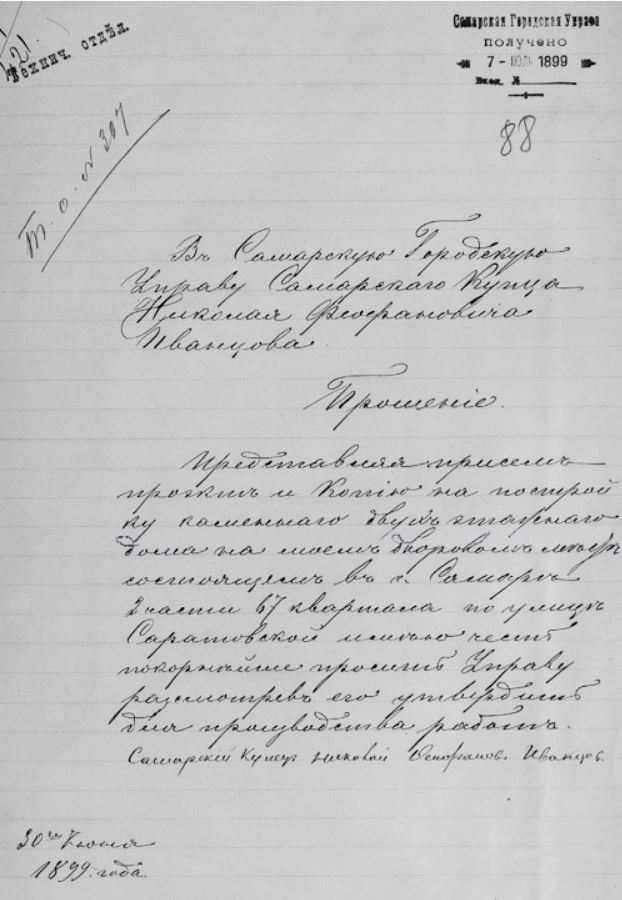 Технич. отдѣл.
421
Самарская Городская Управа
получено
7 - ІЮЛ 1899
Вход. №
88
Т. О. № 307
Въ Самарскую Городскую
Управу Самарскаго Купца
Николая Феофановича
Иванцова.
Прошеніе.
Представляя присемъ
проэктъ и Копію на построй
ку каменнаго двухъ этажнаго
дома на моемъ дворовомъ мѣстѣ
состоящемъ въ г. Самарѣ
2 части 67 квартала по улицѣ
Саратовской имѣю честь
покорнѣйше просить Управу
разсмотрев его утвердить
для производства работъ.
Самарскій Купец Николай Феофанов. Иванцов.
30го Июня
1899. года.